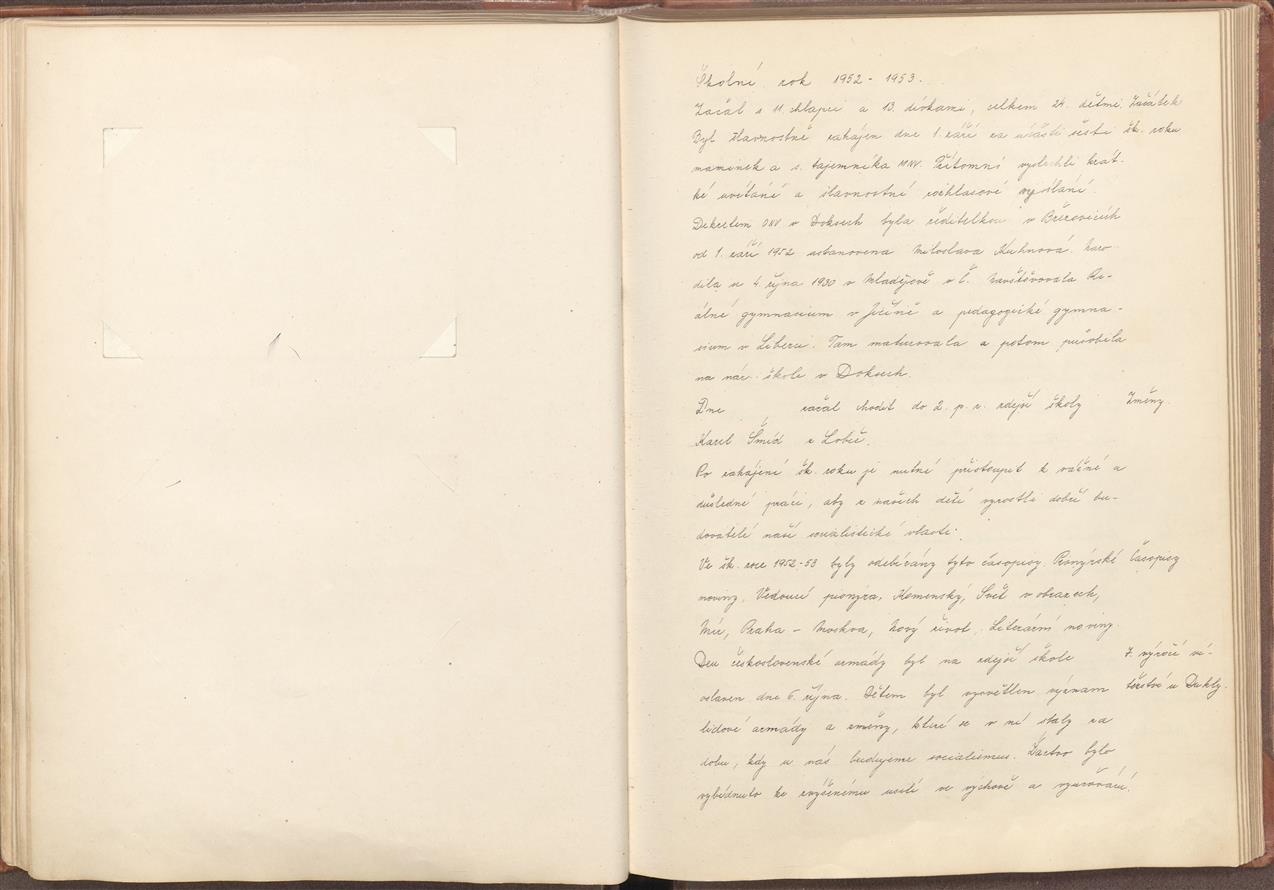 Školní rok 1952 - 1953.
Začal s 11 chlapci a 13. dívkami, celkem 24. dětmi. Začátek
Byl slavnostně zahájen dne 1. září za účasti šesti šk. roku
maminek a s. tajemníka MNV. Přítomní vyslechli krát-
ké uvítání a slavnostní rozhlasové vysílání.
Dekretem ONV v Doksech byla ředitelkou v Březovicích
od 1. září 1952 ustanovena Miloslava Kuhnová. Naro-
dila se 4. října 1930 v Mladějově v Č. Navštěvovala Re-
álné gymnasium v Jičíně a pedagogické gymna-
sium v Liberci. Tam maturovala a potom působila
na nár. škole v Doksech.
Dne začal chodit do 2. p. r. zdejší školy Změny.
Karel Šmíd z Lobče.
Po zahájení šk. roku je nutné přistoupit k vážné a
důsledné práci, aby z našich dětí vyrostli dobří bu-
dovatelé naší socialistické vlasti.
Ve šk. roce 1952-53 byly odebírány tyto časopisy: Pionýrské časopisy
noviny, Vedoucí pionýra, Komenský, Svět v obrazech,
Mír, Praha - Moskva, Nový život, Literární noviny.
Den československé armády byl na zdejší škole 7. výročí ví-
oslaven dne 6. října. Dětem byl vysvětlen význam tězství u Dukly.
lidové armády a změny, které se v ní staly za
dobu, kdy u nás budujeme socialismus. Žactvo bylo
vybídnuto ke zvýšenému úsilí ve výchově a vyučování.